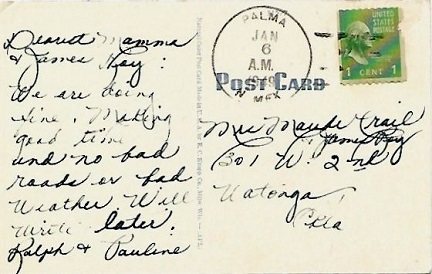 Dearest Mamma
& James Ray:
We are doing
fine. Making
good time
and no bad
roads or bad
weather. Will
write later.
Ralph & Pauline
PALMA
JAN
6
A.M.
1949
N. MEX
UNITED STATES POSTAGE
1 CENT 1
POST CARD
Mrs Maude Crail
& James Ray
301 W. 2nd
Watonga,
Okla